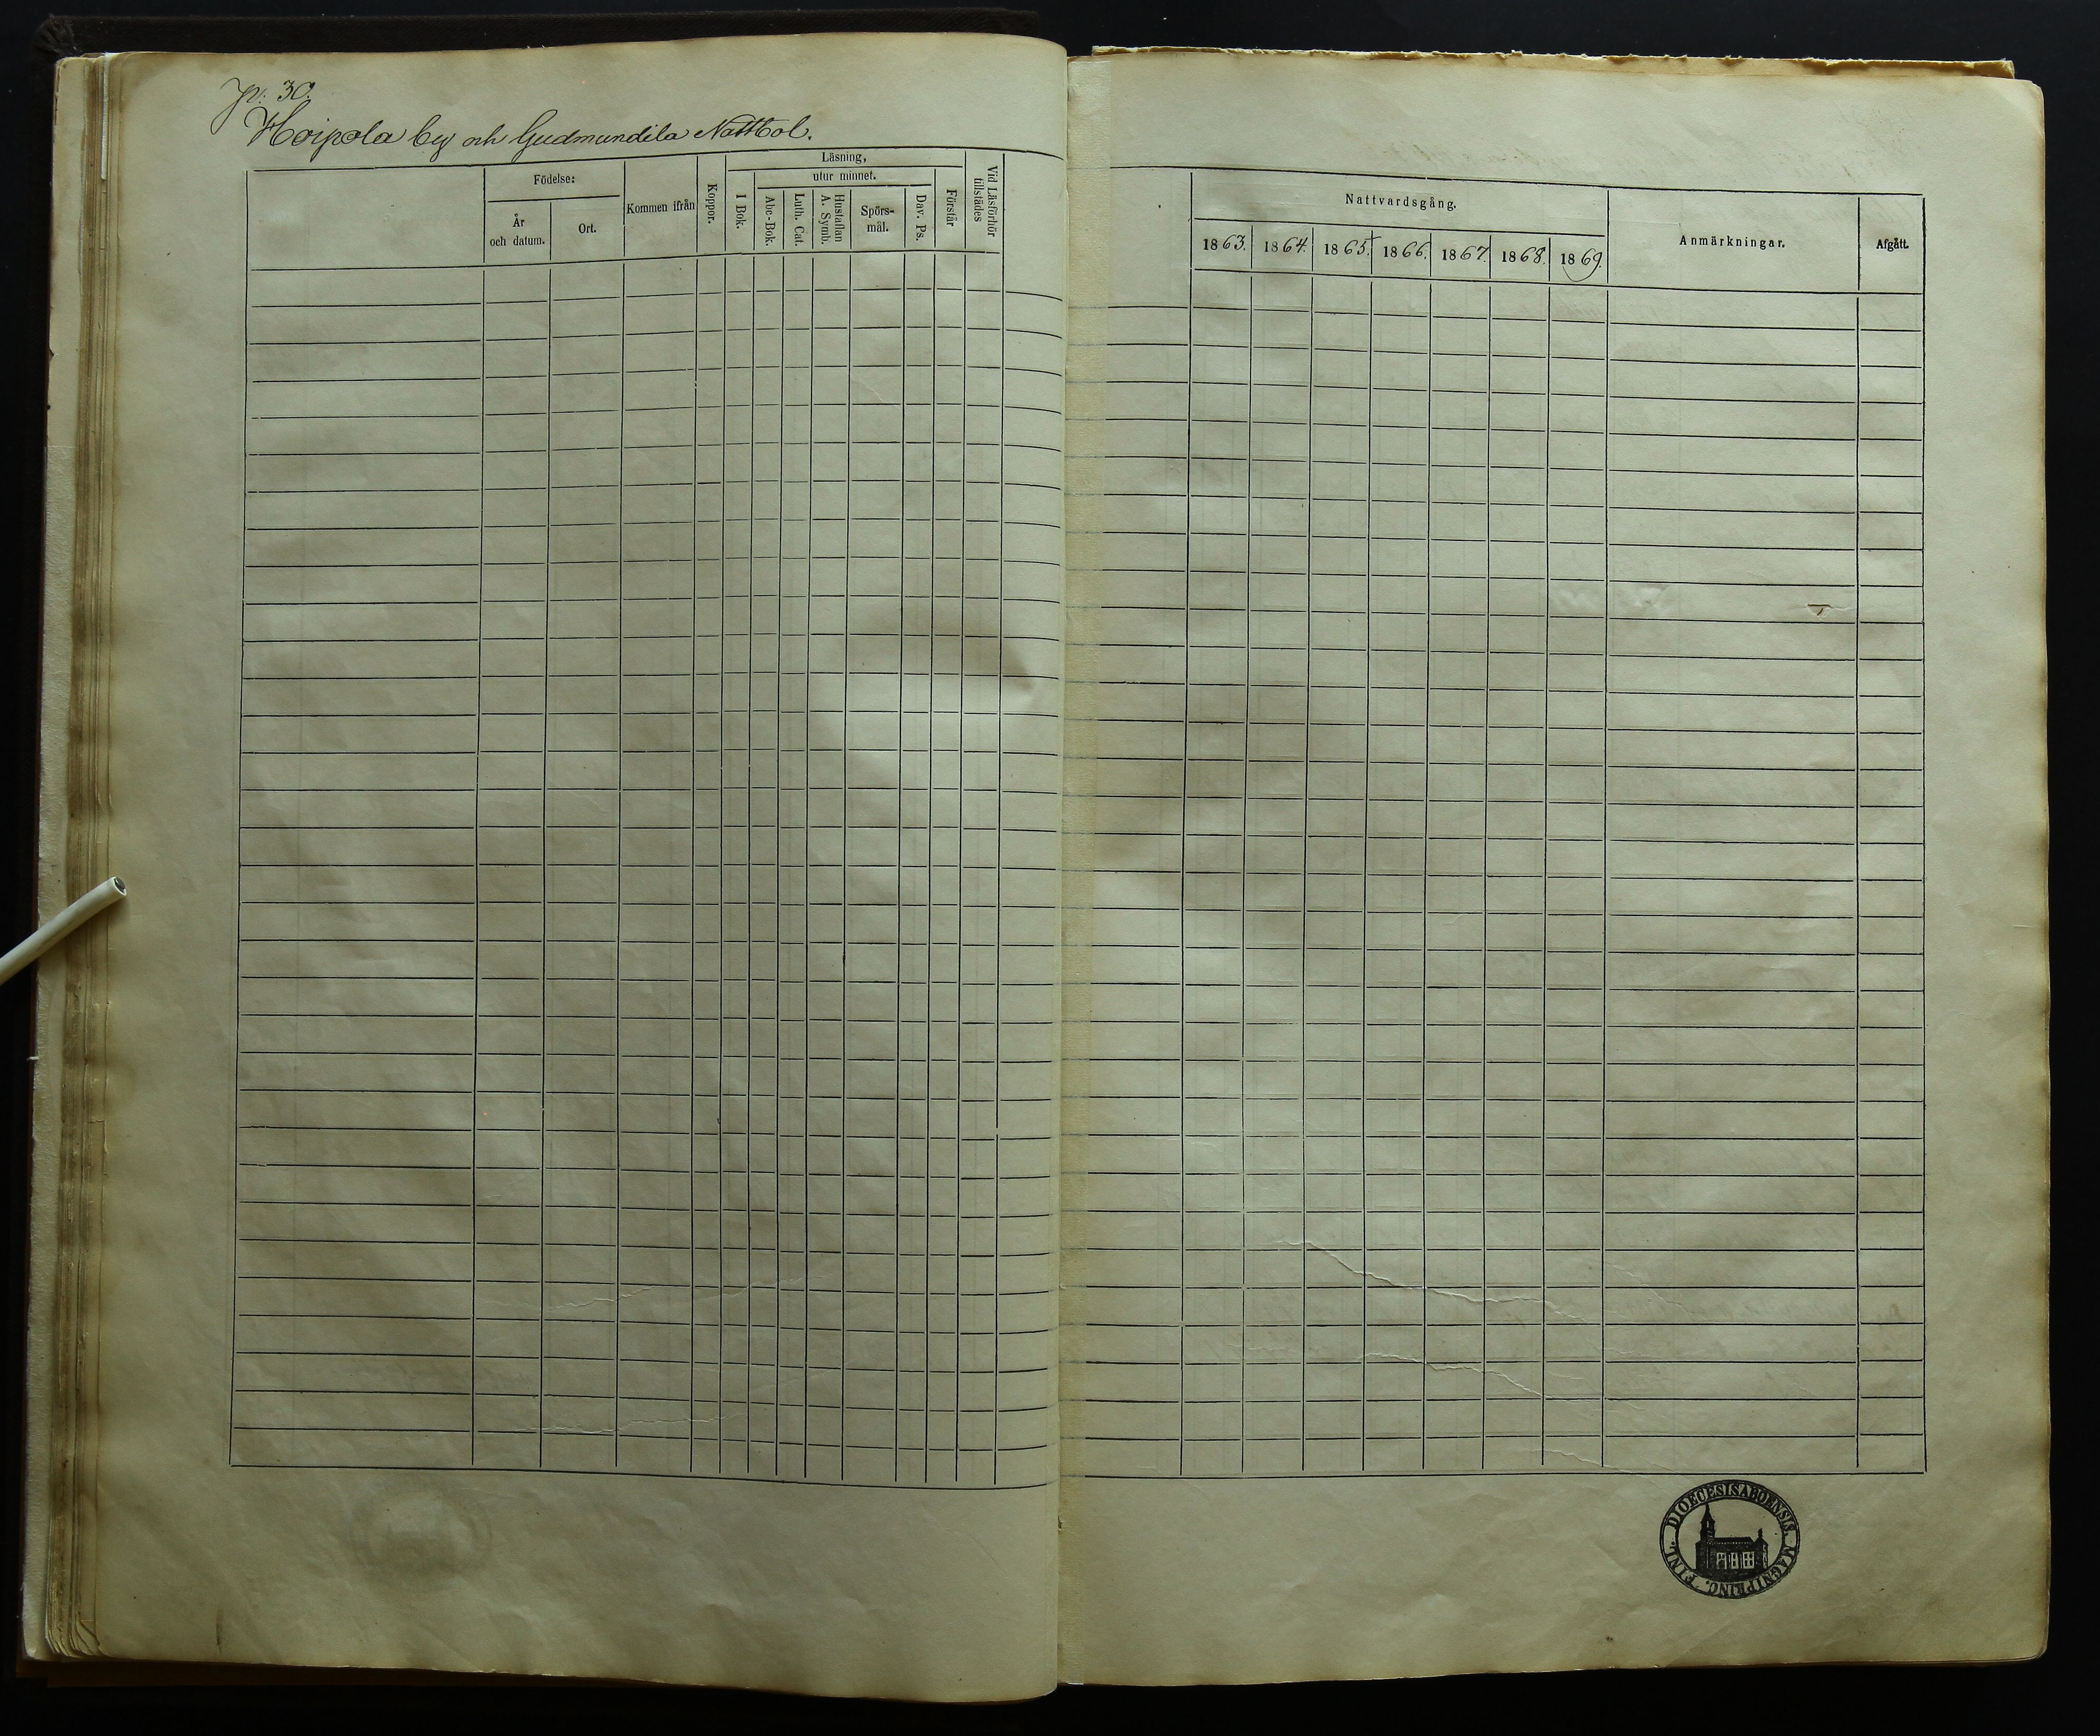 p. 30.
Hoipola by och Gudmundila Nattbol.
Födelse:
År
och datum.
Ort.
Kommen ifrån
Koppor.
Läsning,
I Bok.
utur minnet.
Abc-Bok.
Luth. Cat.
Hustaflan
A. Symb.
Spörs-
mål.
Dav. Ps.
Förstår
Vid Läsförhör
tillstädes
Nattvardsgång.
1863. 1864. 1865. 1866. 1867. 1868. 1869.
Anmärkningar.
Afgått.
DIOECESIS ABOENSIS. MAGNI PRINC. FINL.